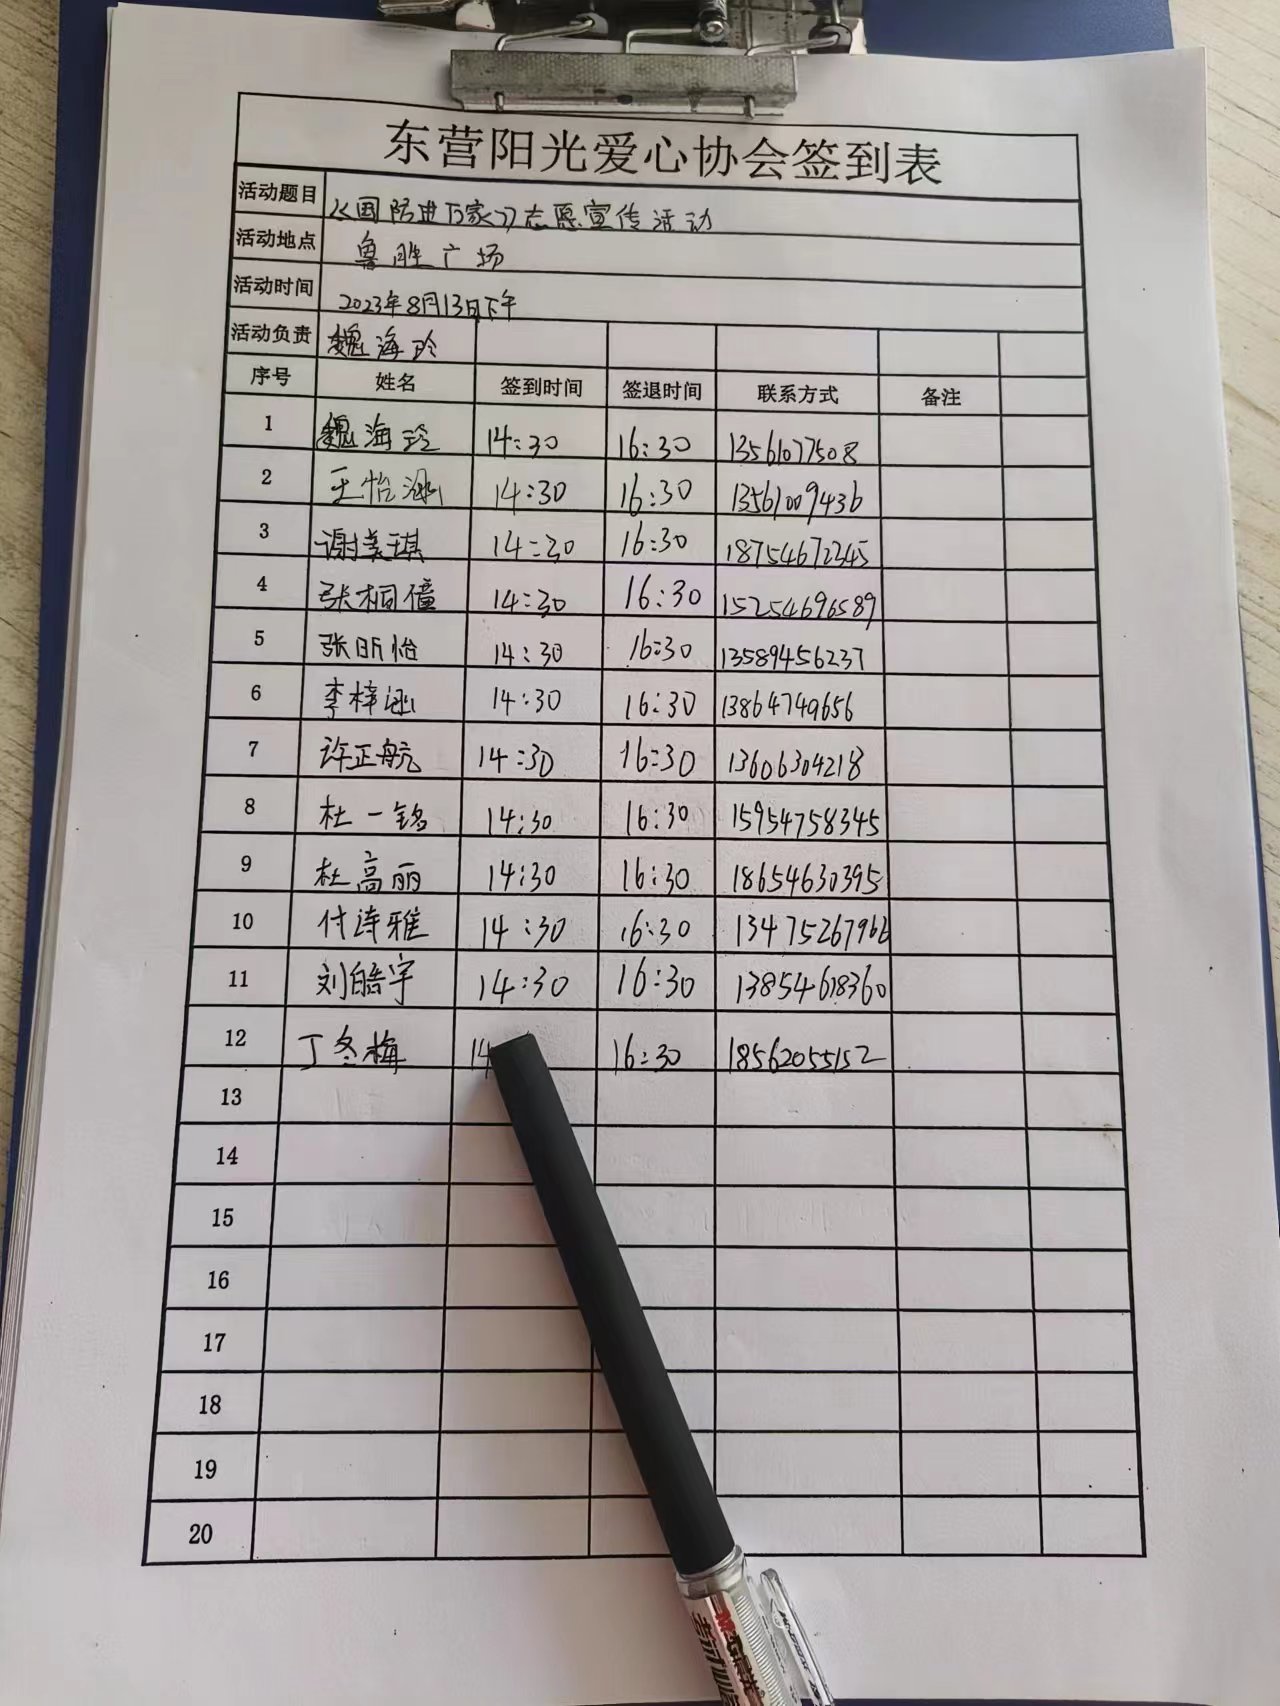 东营阳光爱心协会签到表
活动题目 《国防进万家》志愿宣传活动
活动地点 鲁胜广场
活动时间 2023年8月13日下午
活动负责 魏海玲
序号 姓名 签到时间 签退时间 联系方式 备注
1 魏海玲 14:30 16:30 13561077508
2 王怡涵 14:30 16:30 13561009436
3 谢美琪 14:30 16:30 18754672345
4 张桐僮 14:30 16:30 15254696589
5 张昕怡 14:30 16:30 13589456237
6 李梓涵 14:30 16:30 13864749656
7 许正航 14:30 16:30 13606304218
8 杜一铭 14:30 16:30 15954758345
9 杜高丽 14:30 16:30 18654630395
10 付诗雅 14:30 16:30 13475267966
11 刘皓宇 14:30 16:30 13854618360
12 丁冬梅 14 16:30 18562055152
13
14
15
16
17
18
19
20